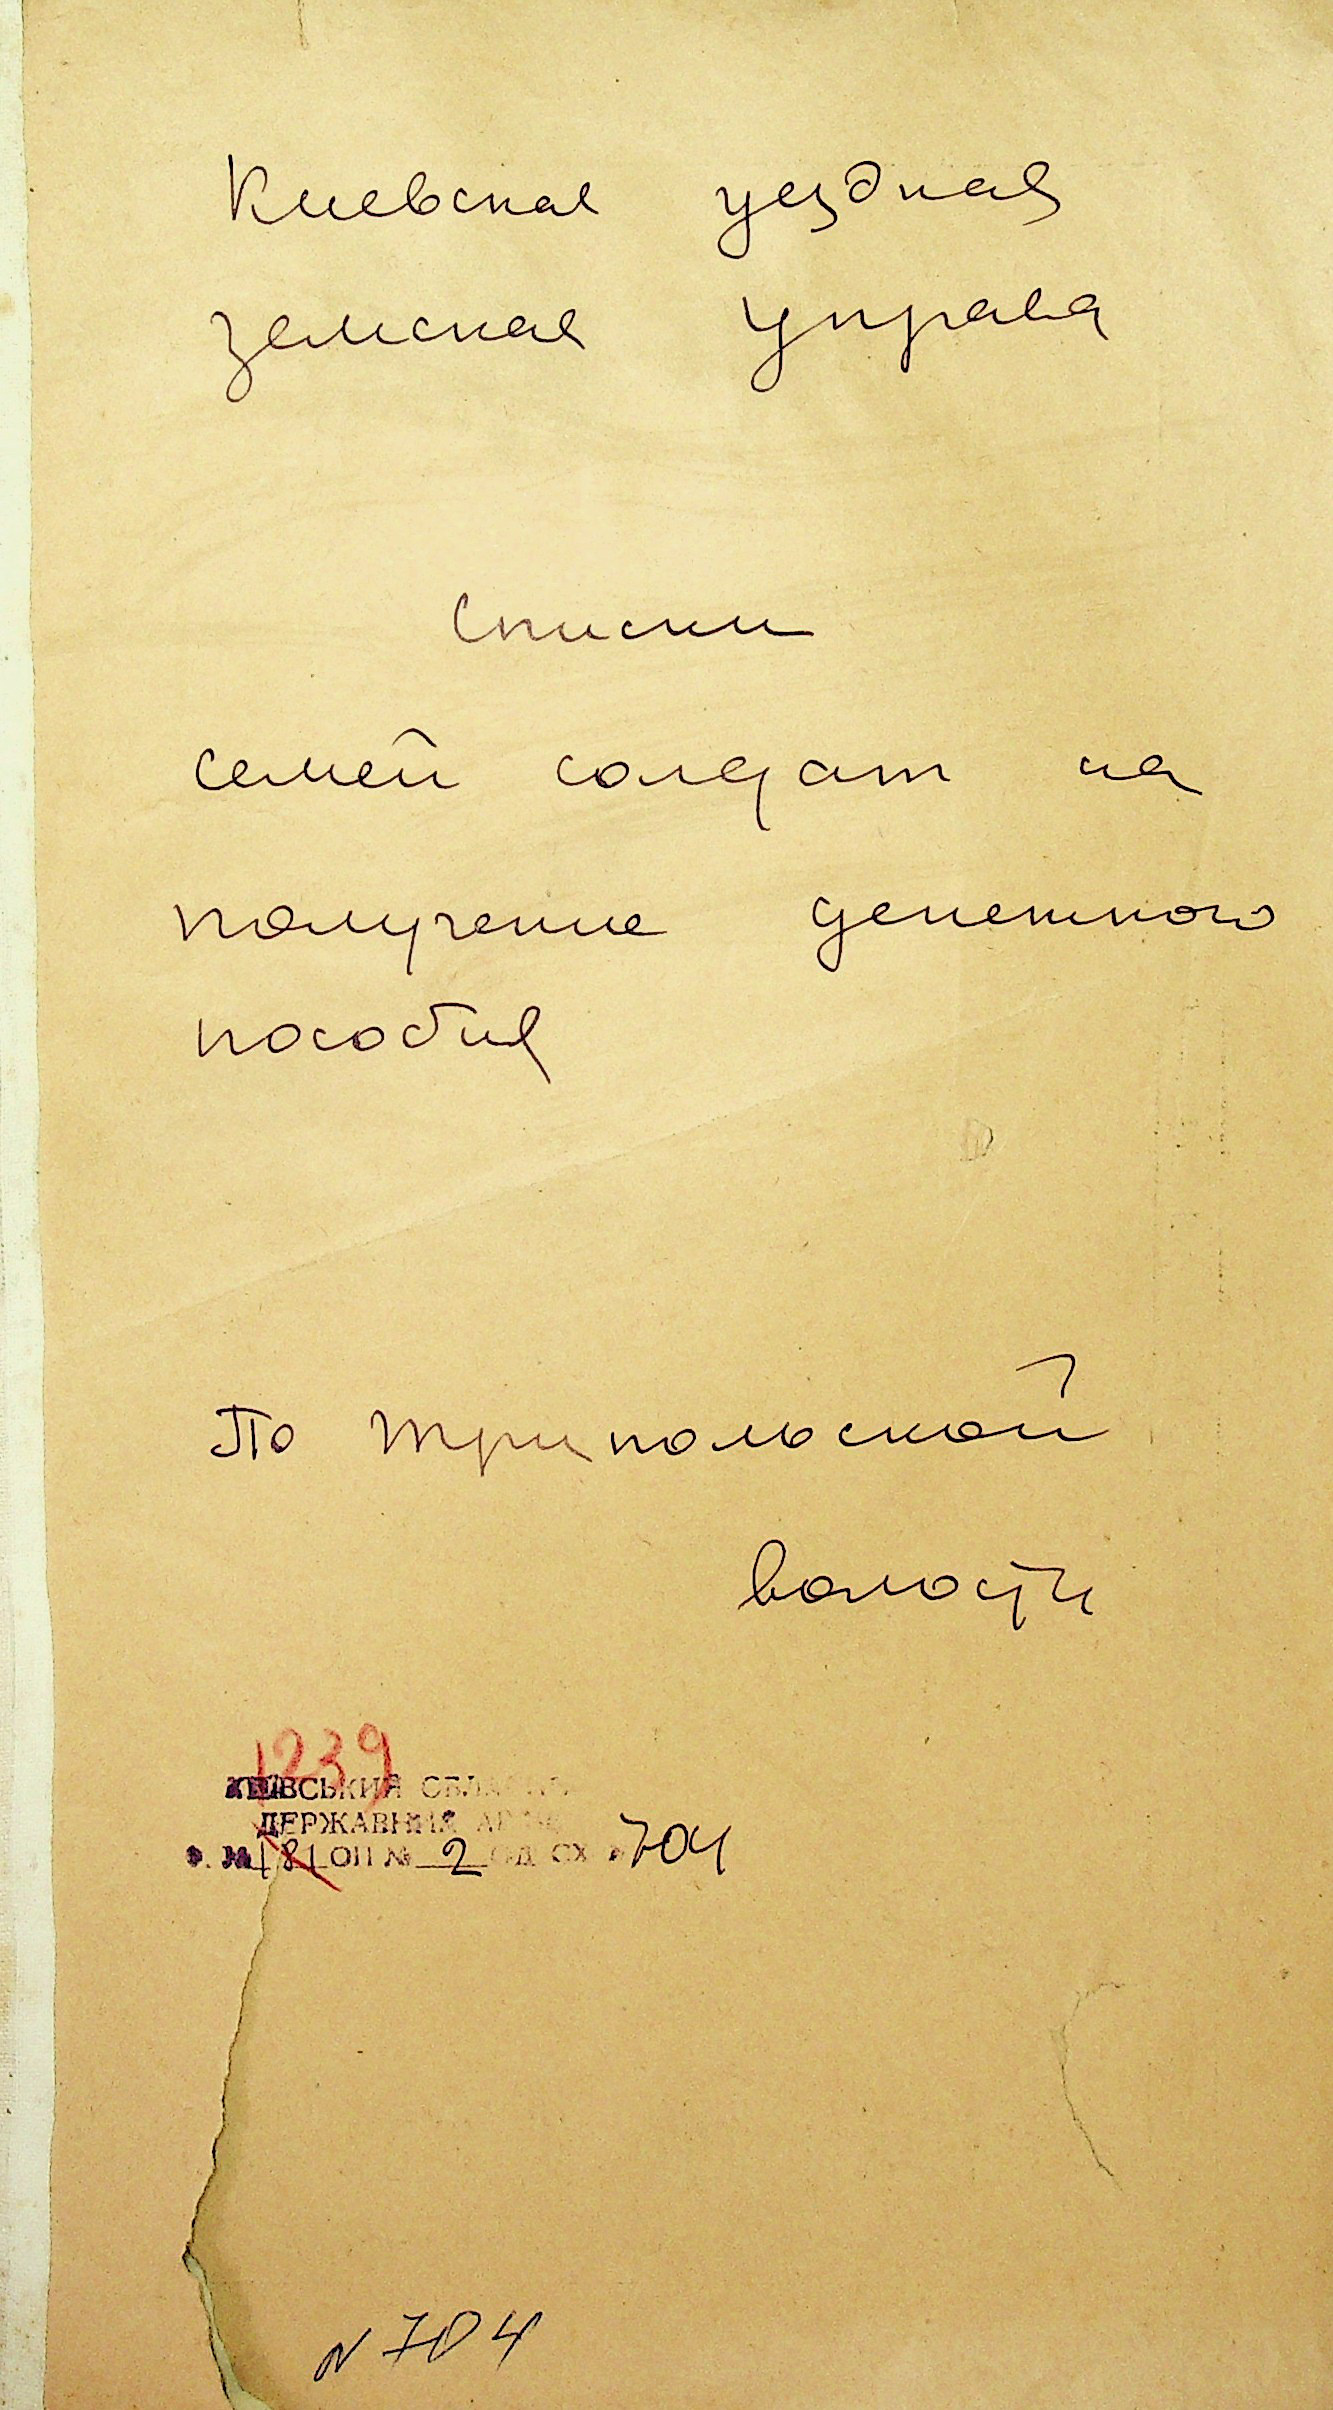 Киевская уездная
земская управа
Списки
семей солдат на
получение денежного
пособия
По Трипольской
волости
1239
КИЇВСЬКИЙ ОБЛАСНИЙ
ДЕРЖАВНИЙ АРХІВ
Ф. № 181 ОП № 2 ОД. СХ. № 704
N 704